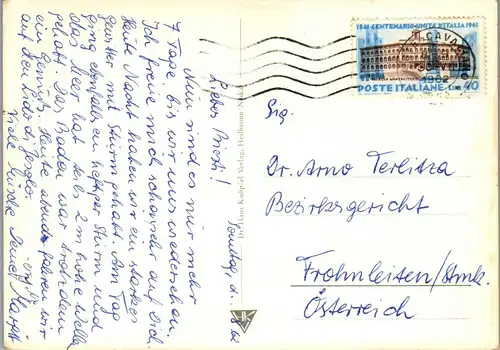 Sonntag, d.
Liebes Biest!
Nun sind es nur mehr
7 Tage bis wir uns wiedersehen.
Ich freue mich schon sehr auf Dich.
Heute Nacht haben wir ein starkes
Gewitter mit Sturm gehabt. Am Tag
ging ebenfalls ein heftiger Sturm und
das Meer hat teils 2 m hohe Wellen
gehabt. Das Baden war trotzdem
ein Genuß. Heute abends fahren wir
auf den Lido di Jesolo.
Viele Bussi
Dr. Hans Kohpfel Verlag, Heilbronn
1861 CENTENARIO UNITÀ D'ITALIA 1961
POSTE ITALIANE Lire 40
CAVA
1962
Sig.
Dr. Arno Terlitza
Bezirksgericht
Frohnleiten/Stmk.
Österreich